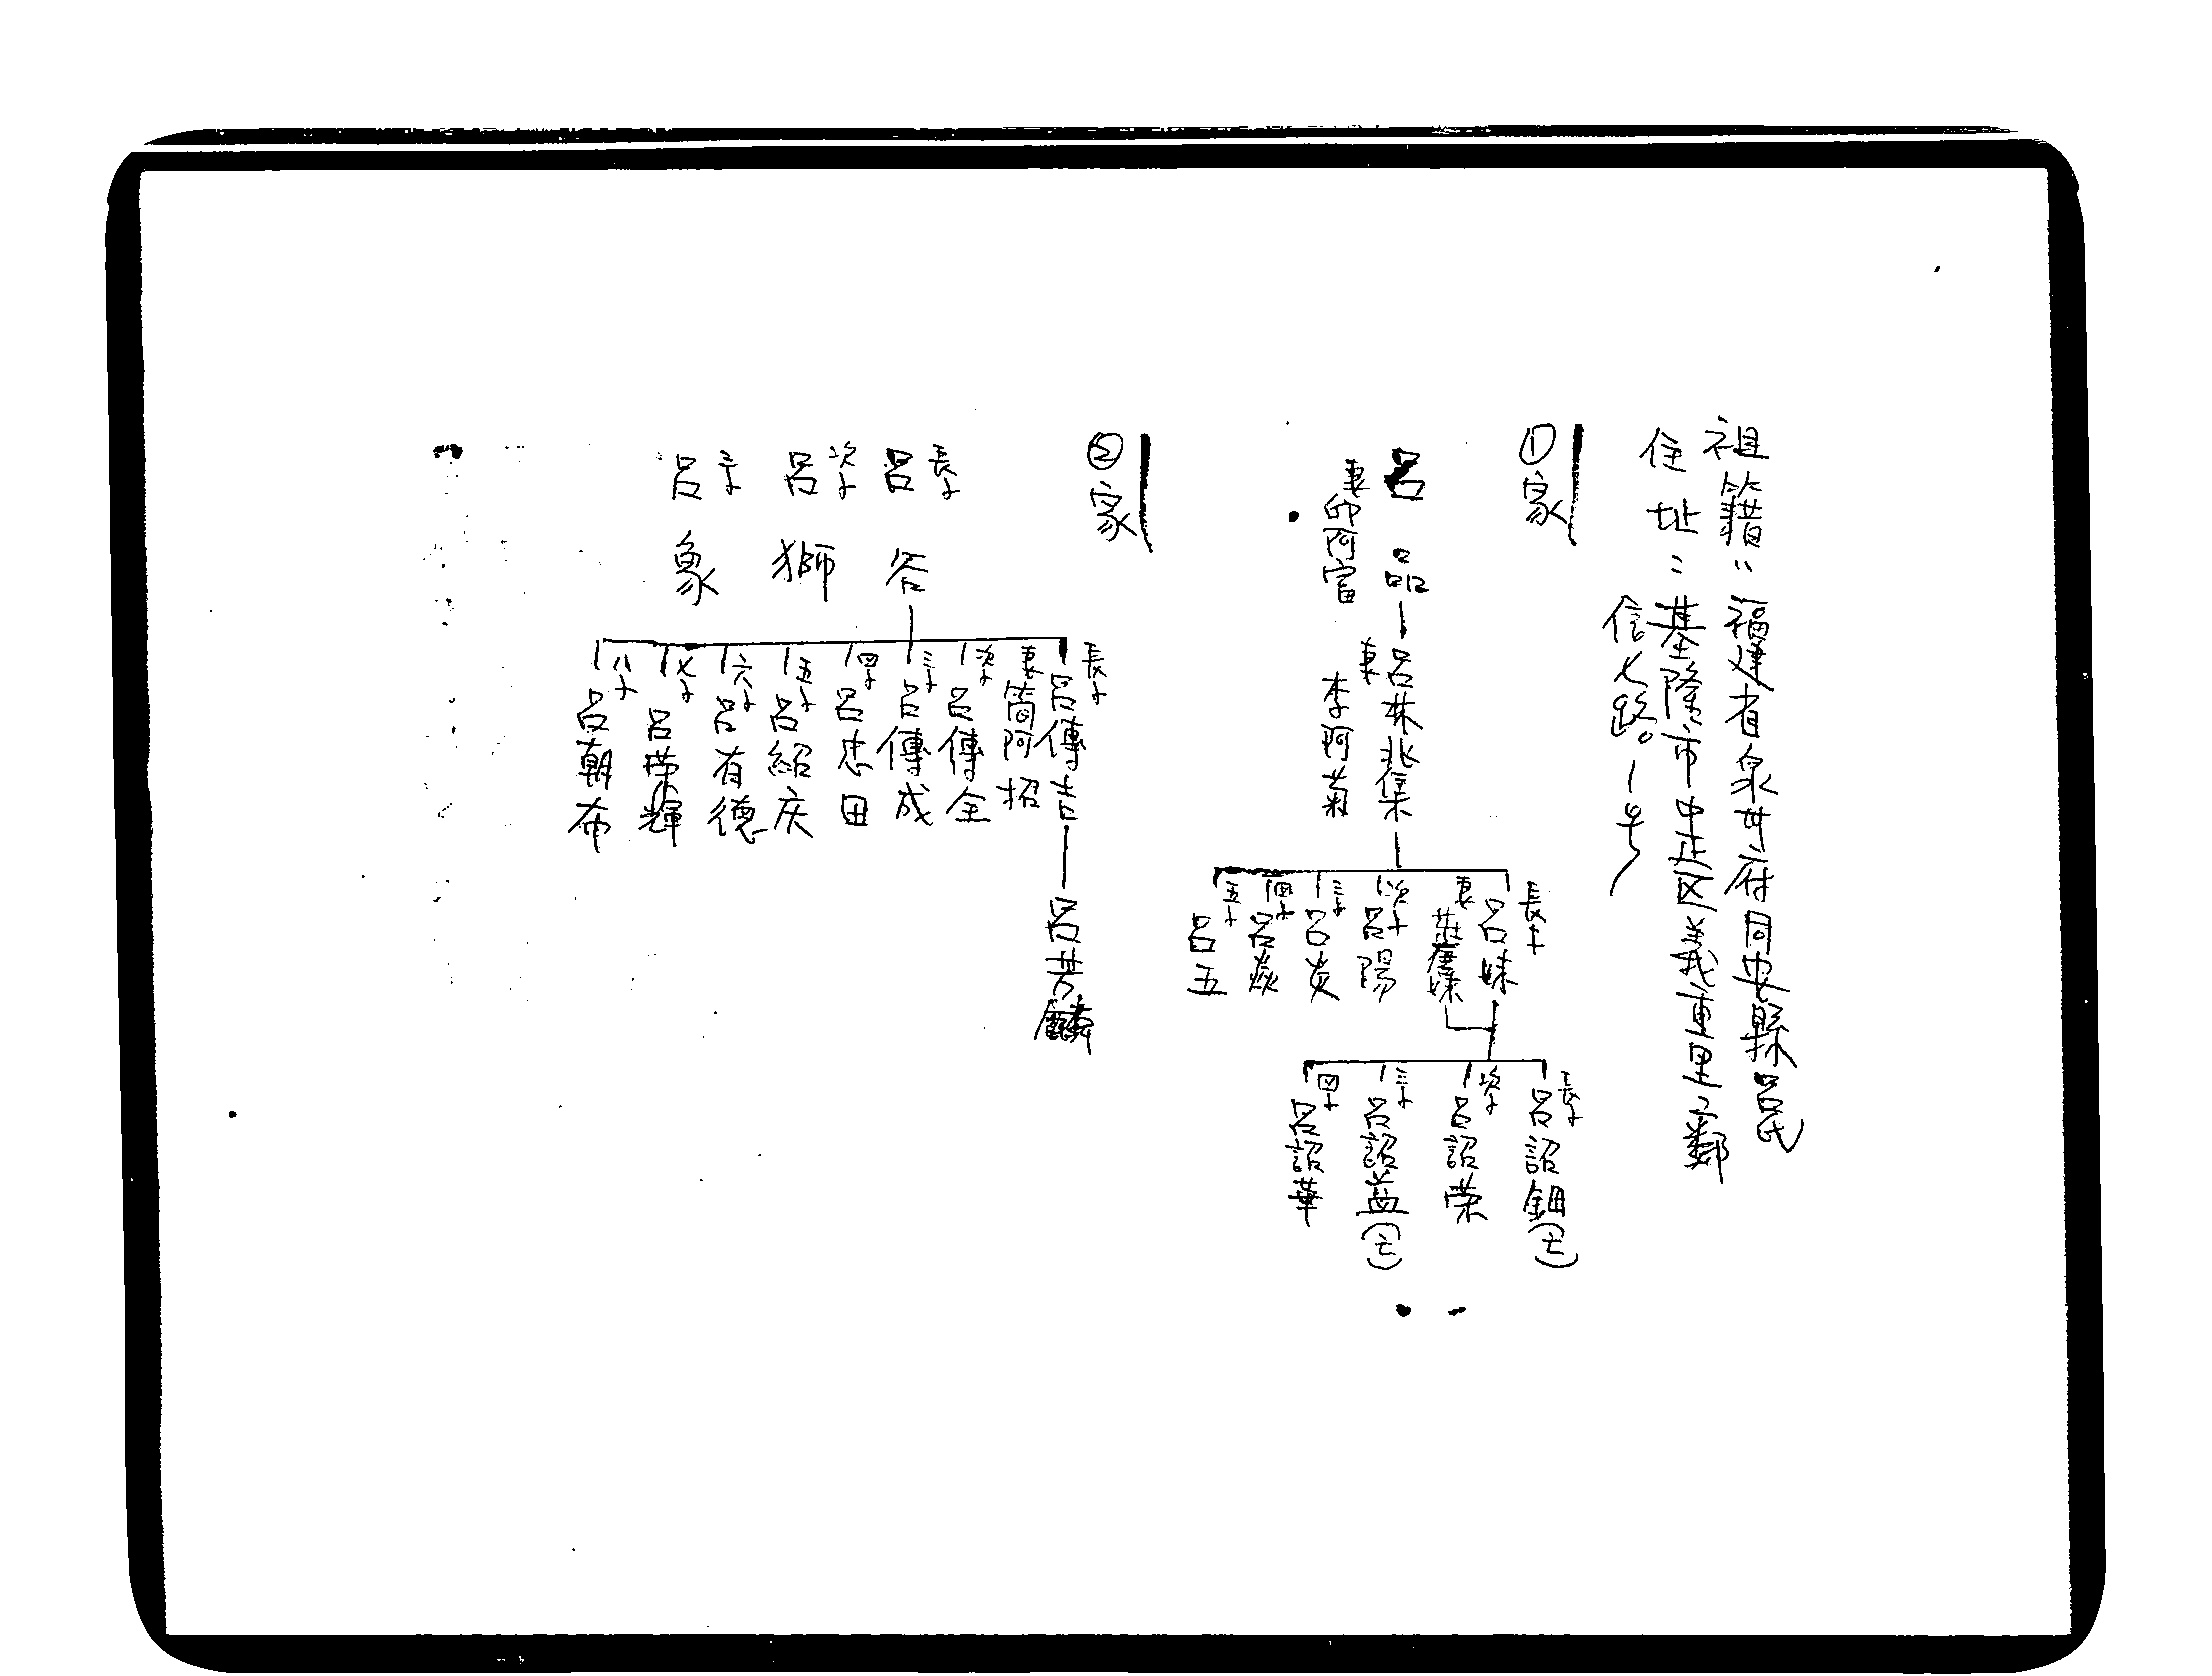 祖籍：福建省泉州府同安縣呂氏
住址：基隆市中正区義重里 鄰
信七路。1号
①家
呂品
妻 邱阿富
呂林兆集
妻 李阿菊
長子 呂妹
妻
次子 呂陽
三子 呂炎
四子 呂焱
五子 呂五
長子 呂詔鈿(亡)
次子 呂詔荣
三子 呂詔益(亡)
四子 呂詔華
②家
長子 呂谷
次子 呂獅
三子 呂象
長子 呂傳吉
妻 簡阿招
次子 呂傳全
三子 呂傳成
四子 呂忠田
五子 呂紹庆
六子 呂有德
七子 呂荣輝
八子 呂朝布
呂芳麟